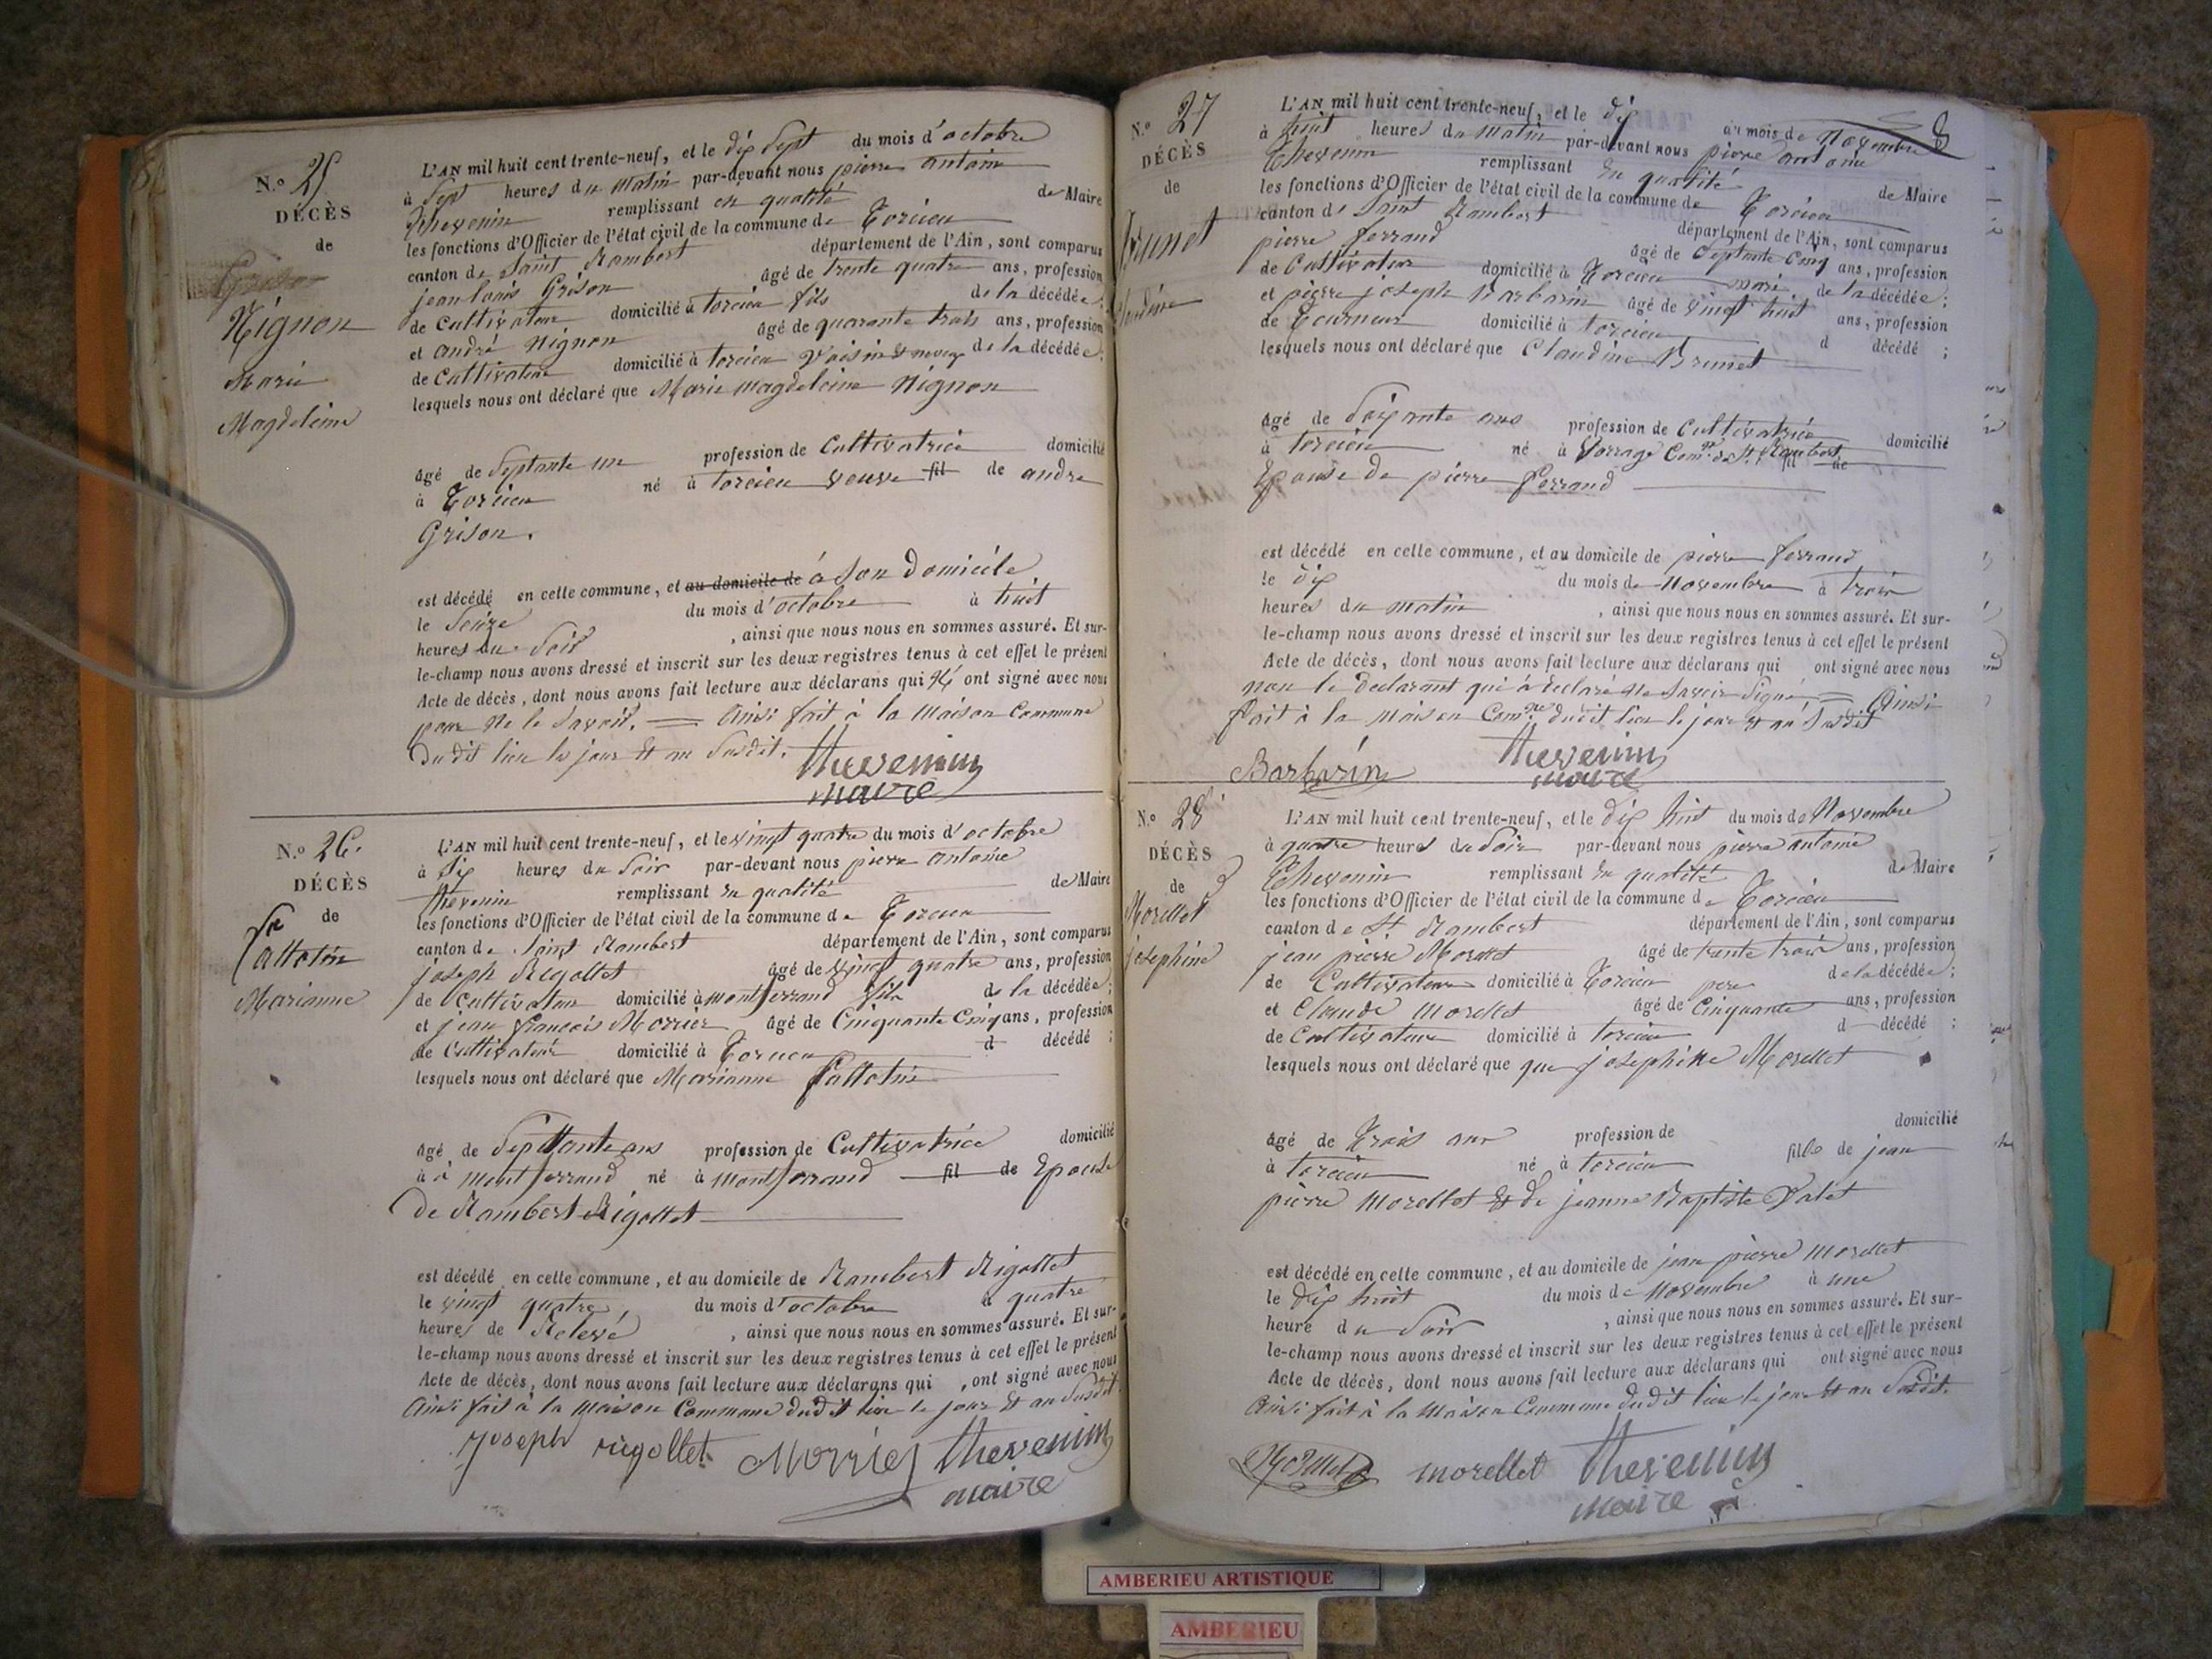 N.o 25
DÉCÈS
de
Nignon
Marie
Magdeleine
L'AN mil huit cent trente-neuf, et le dix sept du mois d'octobre
à Sept heures du matin par-devant nous pierre antoine
Thevenin remplissant en qualité de Maire
les fonctions d'Officier de l'état civil de la commune de Torcieu
canton de Saint Rambert département de l'Ain, sont comparus
jean louis Grison âgé de trente quatre ans, profession
de Cultivateur domicilié à torcieu fils de la décédée;
et andré Nignon âgé de quarante trois ans, profession
de Cultivateur domicilié à torcieu Voisin & neveu de la décédée;
lesquels nous ont déclaré que Marie magdeleine Nignon
âgé de Septante un profession de Cultivatrice domicilié
à Torcieu né à torcieu veuve fil de andre
Grison.
est décédé en cette commune, et au domicile de à son Domicile
le Seize du mois d'octobre à huit
heures du Soir, ainsi que nous nous en sommes assuré. Et sur-
le-champ nous avons dressé et inscrit sur les deux registres tenus à cet effet le présent
Acte de décès, dont nous avons fait lecture aux déclarans qui N'ont signé avec nous
pour Ne le Savoir. = Ainsi fait à la Maison Commune
Du dit lieu le jour & an Susdit.
thevenin
maire
N.o 26.
DÉCÈS
de
fattotin
Marianne
L'AN mil huit cent trente-neuf, et le vingt quatre du mois d'octobre
à Six heures du Soir par-devant nous pierre antoine
thevenin remplissant En qualité de Maire
les fonctions d'Officier de l'état civil de la commune de Torcieu
canton de Saint Rambert département de l'Ain, sont comparus
joseph Rigollet âgé de vingt quatre ans, profession
de Cultivateur domicilié à montferrand fils de la décédée;
et jean françois Morrier âgé de Cinquante Cinq ans, profession
de Cultivateur domicilié à Torcieu d décédé;
lesquels nous ont déclaré que Marianne fattotin
âgé de Septtante ans profession de Cultivatrice domicilié
à à montferrand né à montferrand fil de Epouse
De Rambert Rigollet
est décédé en cette commune, et au domicile de Rambert Rigollet
le vingt quatre, du mois d'octobre à quatre
heures de Relevé, ainsi que nous nous en sommes assuré. Et sur-
le-champ nous avons dressé et inscrit sur les deux registres tenus à cet effet le présent
Acte de décès, dont nous avons fait lecture aux déclarans qui, ont signé avec nous
Ainsi fait à la Maison Commune dudit lieu le jour & an Susdit.
joseph rigollet Morrier thevenin
maire
N.o 27
DÉCÈS
de
Brunet
Claudine
L'AN mil huit cent trente-neuf, et le dix du mois de Novembre
à huit heures du Matin par-devant nous pierre antoine
Thevenin remplissant En qualité de Maire
les fonctions d'Officier de l'état civil de la commune de Torcieu
canton de Saint Rambert département de l'Ain, sont comparus
pierre ferrand âgé de Septante Cinq ans, profession
de Cultivateur domicilié à Torcieu mari de la décédée;
et pierre joseph Barbarin âgé de vingt huit ans, profession
de Tourneur domicilié à torcieu d décédé;
lesquels nous ont déclaré que Claudine Brunet
âgé de Soixante ans profession de Cultivatrice domicilié
à torcieu né à Serrage Com.ne de St Rambert fil de
Epouse De pierre ferrand
est décédé en cette commune, et au domicile de pierre ferrand
le dix du mois de Novembre à trois
heures du matin, ainsi que nous nous en sommes assuré. Et sur-
le-champ nous avons dressé et inscrit sur les deux registres tenus à cet effet le présent
Acte de décès, dont nous avons fait lecture aux déclarans qui ont signé avec nous
non le Declarant qui à Declaré Ne Savoir Signé, = Ainsi
fait à la Maison Com.ne dudit lieu le jour & an Susdit
Barbarin thevenin
maire
N.o 28
DÉCÈS
de
Morellet
josephine
L'AN mil huit cent trente-neuf, et le Dix huit du mois de Novembre
à quatre heures du Soir par-devant nous pierre antoine
Thevenin remplissant En qualité de Maire
les fonctions d'Officier de l'état civil de la commune de Torcieu
canton de St Rambert département de l'Ain, sont comparus
jean pierre Morellet âgé de trente trois ans, profession
de Cultivateur domicilié à Torcieu pere de la décédée;
et Claude Morellet âgé de Cinquante ans, profession
de Cultivateur domicilié à torcieu d décédé;
lesquels nous ont déclaré que que josephine Morellet
âgé de Trois ans profession de domicilié
à torcieu né à torcieu fille de jean
pierre Morellet & de jeanne Baptiste Valet
est décédé en cette commune, et au domicile de jean pierre Morellet
le Dix huit du mois de Novembre à une
heure du Soir, ainsi que nous nous en sommes assuré. Et sur-
le-champ nous avons dressé et inscrit sur les deux registres tenus à cet effet le présent
Acte de décès, dont nous avons fait lecture aux déclarans qui ont signé avec nous
Ainsi fait à la Maison Commune dudit lieu le jour & an Susdit.
Morellet morellet thevenin
maire
AMBERIEU ARTISTIQUE
AMBERIEU